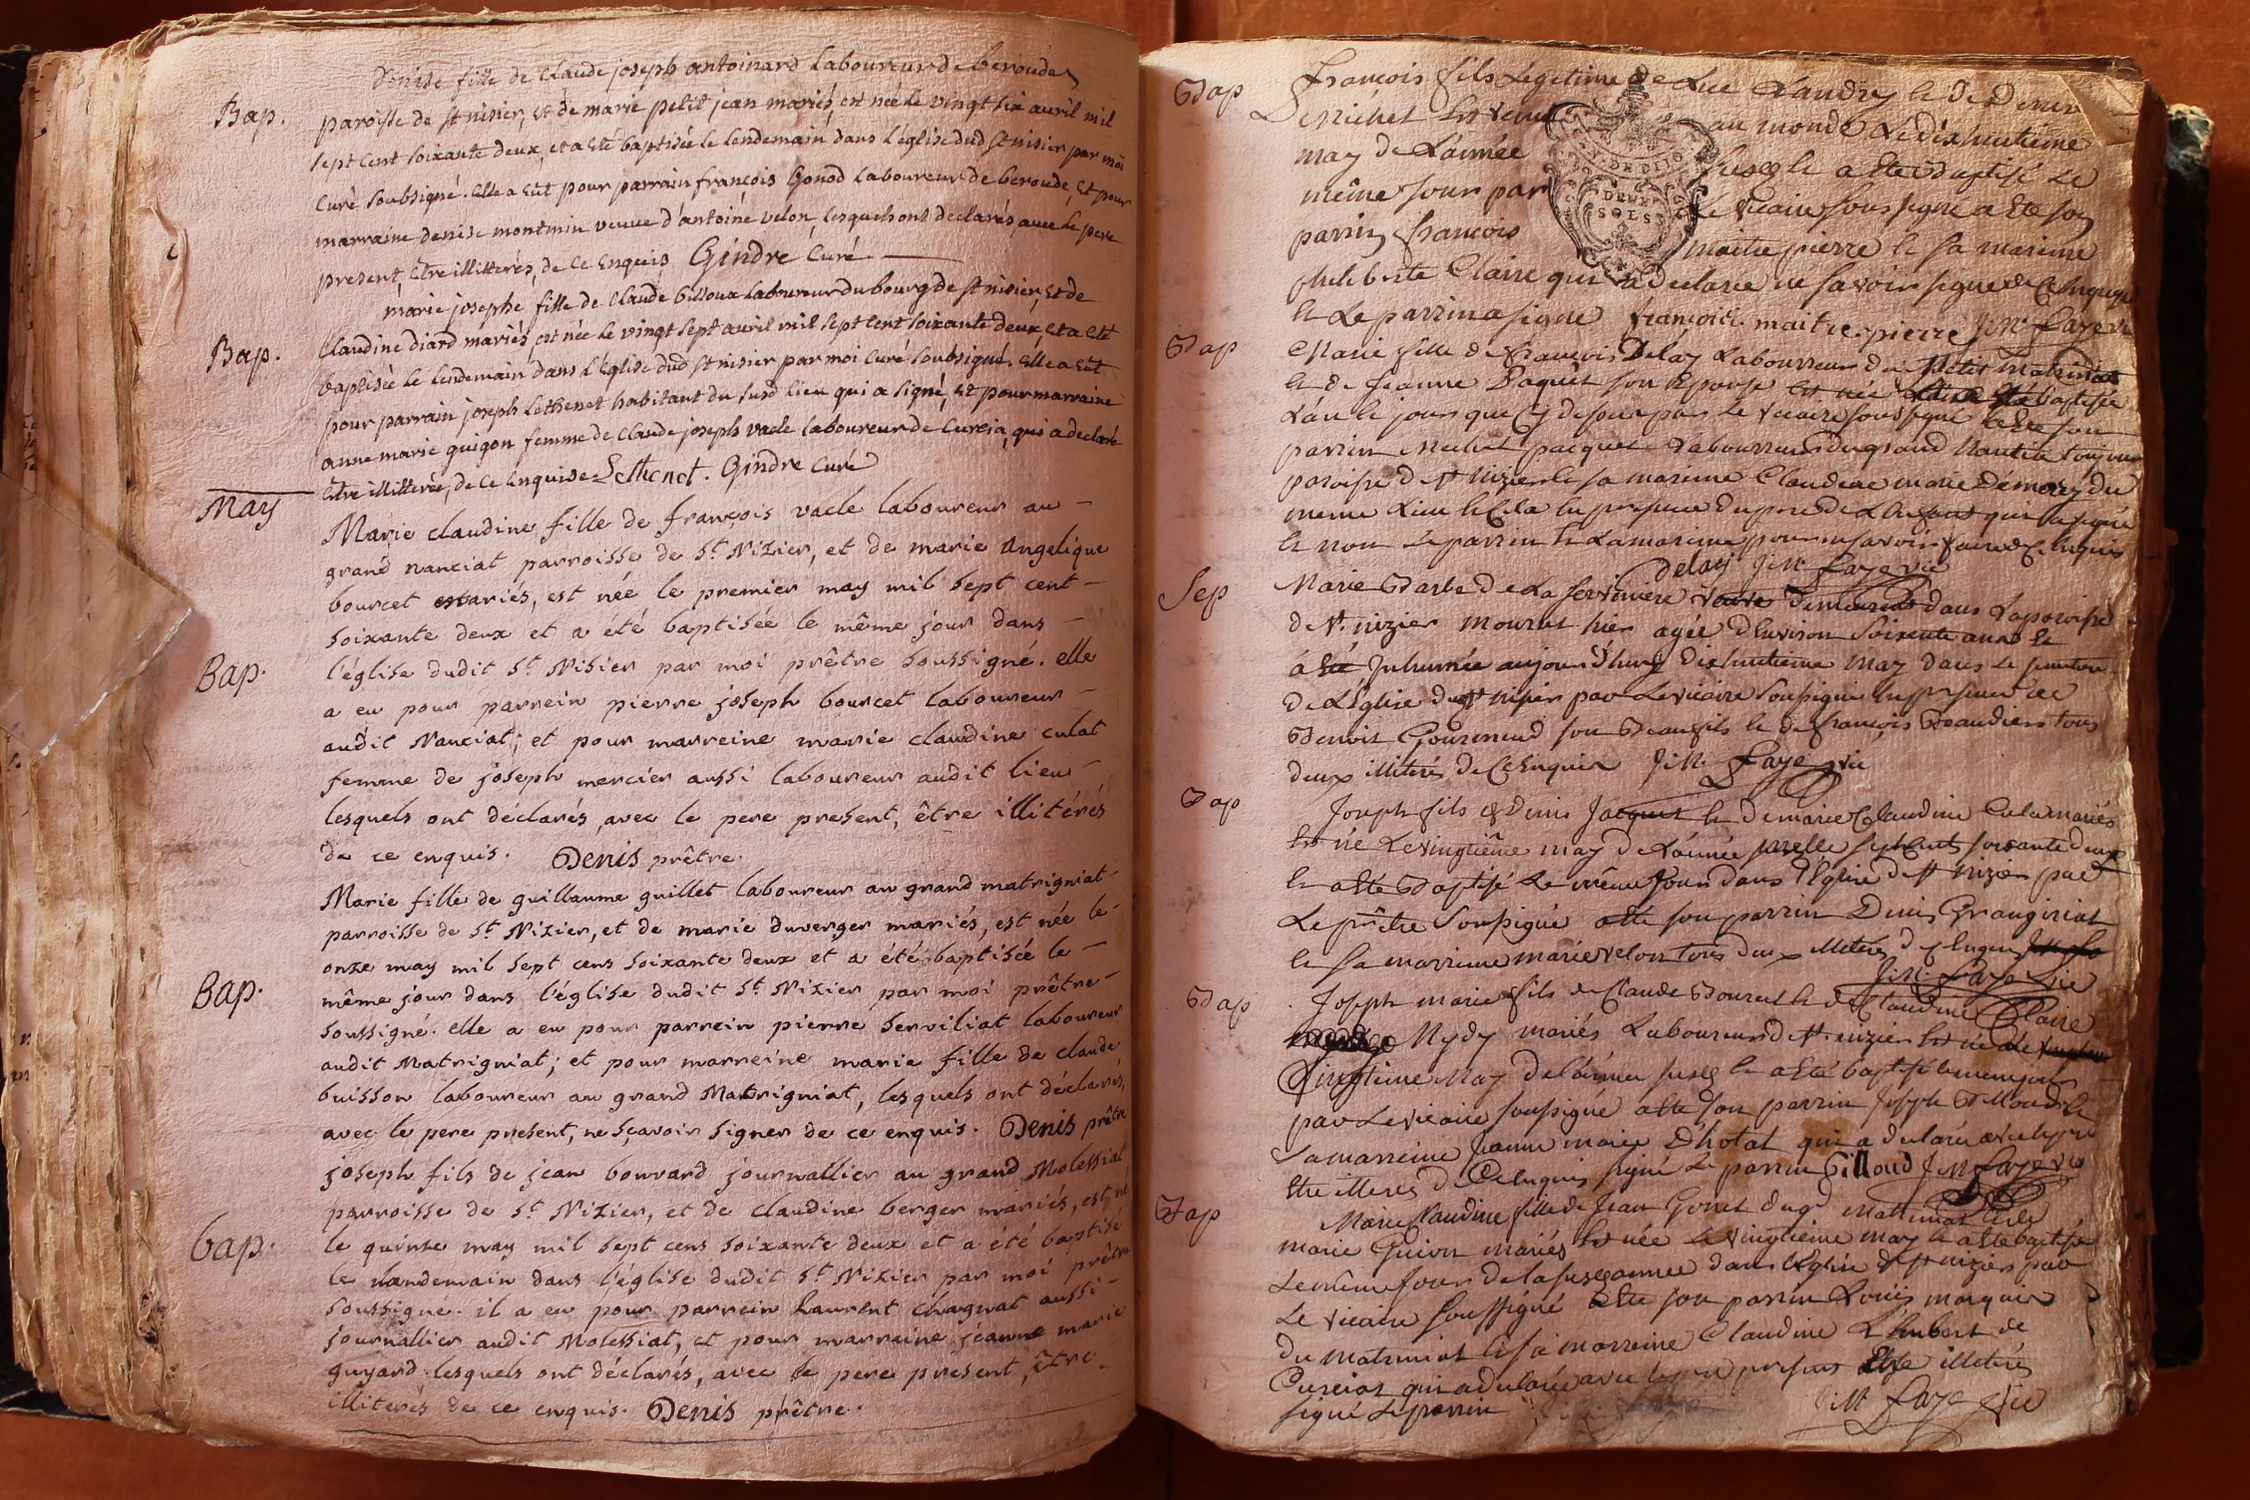 Denise fille de Claude joseph antoinard laboureur de beroude
Bap.
paroisse de st nisier, et de marie petit jean mariés, est née le vingt six avril mil
sept cent soixante deux, et a eté baptisée le lendemain dans l'église dud st nisier par moi
curé soubsigné. elle a eüt pour parrain françois Gonod laboureur de beroude, et pour
marraine denise montmin veuve d'antoine velon, lesquels ont declarés, avec le pere
present, etre illitterés, de ce enquis Gindre curé
marie josephe fille de Claude billoux laboureur du bourg de st nisier, et de
Bap.
Claudine diard mariés, est née le vingt sept avril mil sept cent soixante deux, et a eté
baptisée le lendemain dans l'église dud st nisier par moi curé soubsigné. elle a eüt
pour parrain joseph Lethenet habitant du susd lieu qui a signé, et pour marraine
anne marie guigon femme de Claude joseph vacle laboureur de Curcia, qui a declaré
etre illitterée, de ce enquise Lethenet. Gindre curé
May
Marie claudine fille de françois vacle laboureur au
grand nanciat parroisse de St. Nizier, et de marie angelique
bourcet mariés, est née le premier may mil sept cent
soixante deux et a été baptisée le même jour dans
Bap.
l'église dudit St. Nisier par moi prêtre soussigné. elle
a eu pour parrein pierre joseph bourcet laboureur
audit Nanciat; et pour marreine marie claudine culat
femme de joseph mercier aussi laboureur audit lieu
lesquels ont déclarés, avec le pere present, être illitérés
de ce enquis. Denis prêtre.
Marie fille de guillaume guillet laboureur au grand matrigniat
parroisse de St. Nizier, et de marie duverger mariés, est née le
onze may mil sept cens soixante deux et a été baptisée le
Bap.
même jour dans l'église dudit St. Nizier par moi prêtre
soussigné. elle a eu pour parrein pierre serviliat laboureur
audit Matrigniat; et pour marreine marie fille de claude
buisson laboureur au grand Matrigniat, lesquels ont déclarés,
avec le pere present, ne sçavoir signer de ce enquis. Denis prêtre
joseph fils de jean bouvard journallier au grand Molessiat
parroisse de St. Nizier, et de claudine berger mariés, est né
bap.
le quinze may mil sept cens soixante deux et a été baptisé
le lendemain dans l'église dudit St. Nizier par moi prêtre
soussigné. il a eu pour parrein Laurent chagnat aussi
journallier audit Molessiat, et pour marraine jeanne marie
guyard lesquels ont déclarés, avec le pere present, être
illiterés de ce enquis. Denis prêtre.
Bap
François fils Legitime de Luc Landry
au monde Le dixhuitieme
may de L'année susd le a eté Baptisé Le
même jour par Le vicaire soussigné a eté son
parrin françois maitre pierre et sa marenne
philiberte Claire qui a declaré ne savoir signer de ce
et Le parrin a signé françois maitre pierre J:M: Faye vic
Bap
Marie fille de françois Delay Laboureur du petit matrignat
et de jeanne Paquet son Epouse est née baptisée
L'an et jour que cy dessus par Le vicaire soussigné et eté son
parrin Michel pacquet Laboureur du grand
paroisse de st Nizier et sa marenne Claudine marie Démorey du
meme Lieu et Cela en presence du pere de L'Enfant qui a signé
et non Le parrin et La marenne pour ne savoir
delay J:M: Faye vic
Sep
Marie Barbe de La Serviniere veuve demeurant dans La paroisse
de st. nizier mourut hier agée d'Environ Soixente ans et
a eté Inhumée aujourd'huy dixhuitieme may dans Le
de L'église de st nizier par Le vicaire soussigné en presence de
Benoit Gourmend son Beaufils et de françois Beaudier tous
deux illiterés de Ce Enquis J:M: Faye vic
Bap
Joseph fils de Denis Jacquet et de marie Claudine Cula mariés
est né Le vingtiême may de L'année mille sept Cents soixante deux
et a eté Baptisé Le même Jour dans L'Eglise de st nizier par
Le prêtre Soussigné a eté son parrin Denis Grangiriat
et sa marrenne marie velon tous deux illiterés de Ce Enquis
J:M: Faye vic
Bap
Joseph marie fils de Claude Bouret et de Claudine Claire
Nydy mariés Laboureurs de st. nizier est né
Vingtième May de L'année susd et a eté baptisé le meme jour
par Le vicaire soussigné a eté son parrin Joseph
Sa marreine Jeanne marie D'hotal qui a declaré avec le pere
Etre illeres de Ce Enquis signé Le parrin Gilloud J:M: Faye vic
Bap
Marie Claudine fille de Jean Gonet du gd matrinat et de
marie Guion mariés est née Le vingtième may et a eté baptisé
Le même Jour de la susd année dans L'Eglise de st nizier par
Le vicaire soussigné a eté son parrin Louis marquis
Du matrinat et sa marreine Claudine L'hubert de
Curciat qui a declarée avec le pere present Etre illiterés
signé Le parrin J:M: Faye Vic